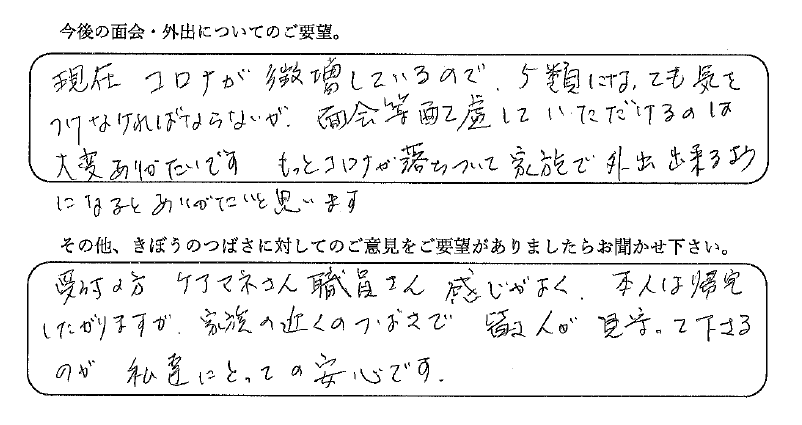 今後の面会・外出についてのご要望。
現在 コロナが 微増しているので、5類になっても気を
つけなければならないが、面会等配慮していただけるのは
大変ありがたいです もっとコロナが落ちついて家族で外出出来るよう
になるとありがたいと思います
その他、きぼうのつばさに対してのご意見をご要望がありましたらお聞かせ下さい。
受付の方 ケアマネさん 職員さん 感じがよく、本人は帰宅
したがりますが、家族の近くのつばさで 皆さんが 見守って下さる
のが 私達にとっての安心です.